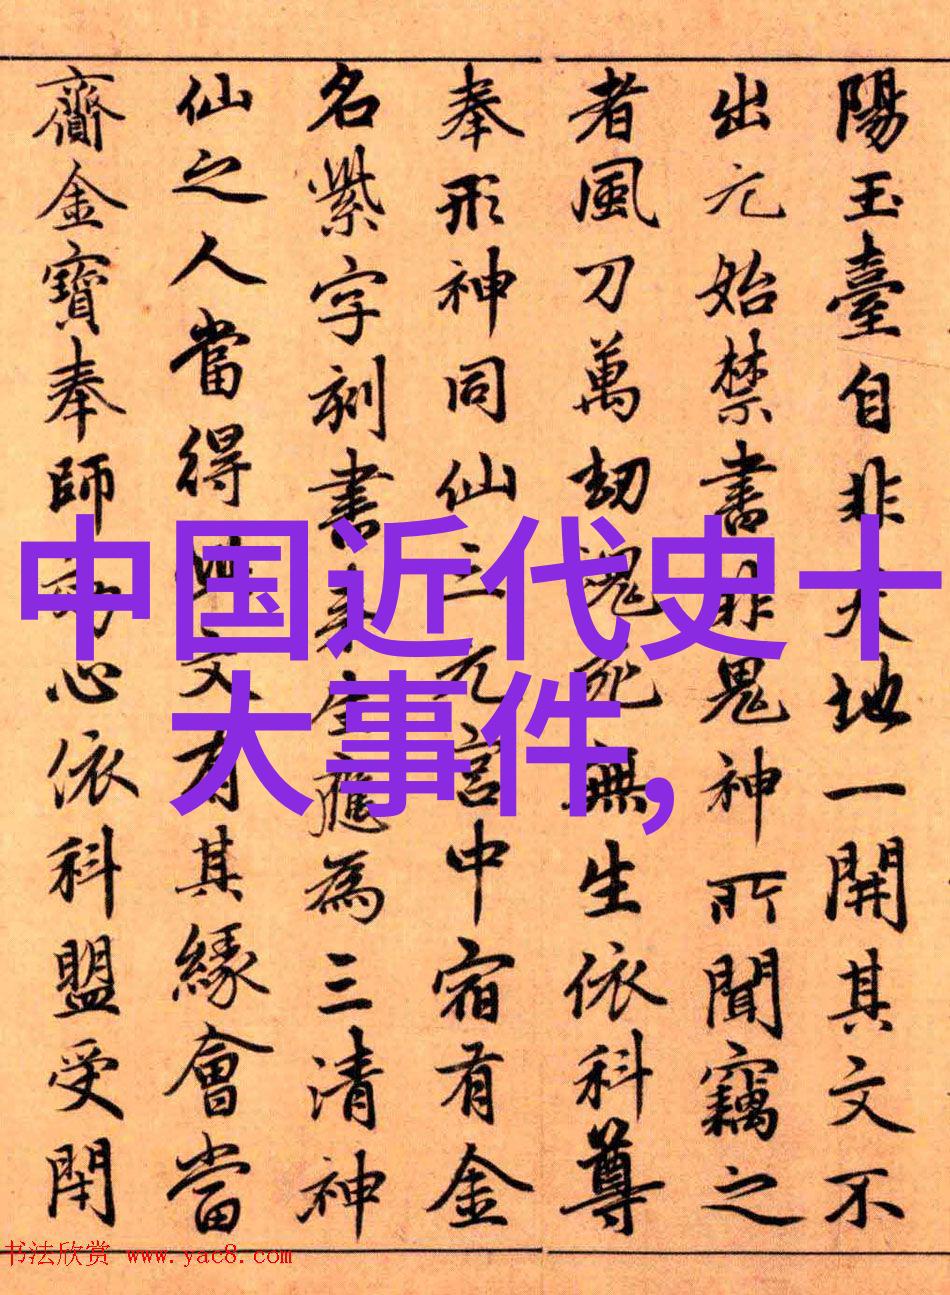 陽玉臺自非天地一開其文不
出元始禁書非鬼神所聞竊之
者風刀萬劫魂死無生依科尊
奉形神同仙三元宮中宿有金
名紫字刻書來生應為三清神
仙之人當得此文有其緣會當
齎金寶奉師効心依科盟受閇
中国近代史十
大事件,
书法欣赏 www.yac8.com